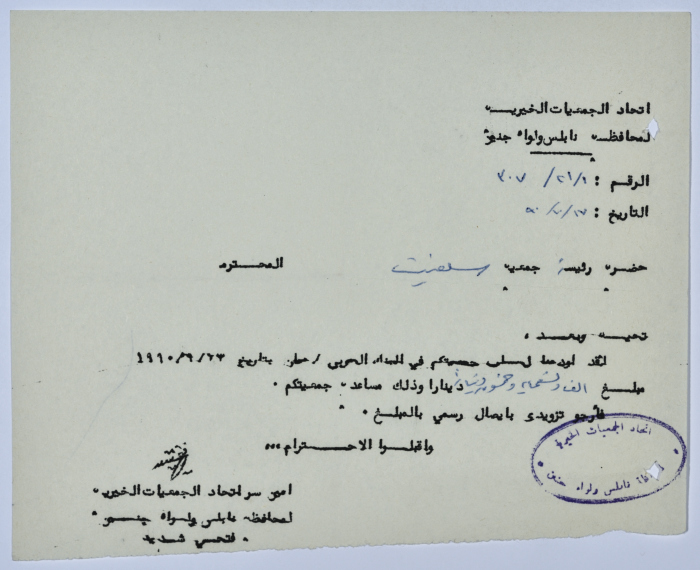 اتحاد الجمعيات الخيرية
لمحافظة نابلس ولواء جنين
الرقم : ٢١/١/ ٣٠٧
التاريخ :
حضرة رئيسة جمعية سلفيت المحترمة
تحية وبعد ،
لقد اودعنا لحساب جمعيتكم في البنك العربي / عمان بتاريخ
مبلغ الف وتسعماية وخمسون دينارا وذلك مساعدة جمعيتكم .
فأرجو تزويدي بايصال رسمي بالمبلغ .
واقبلوا الاحترام ،،،
امين سر اتحاد الجمعيات الخيرية
لمحافظة نابلس ولواء جنين
فتحي شديد
اتحاد الجمعيات الخيرية
نابلس ولواء جنين